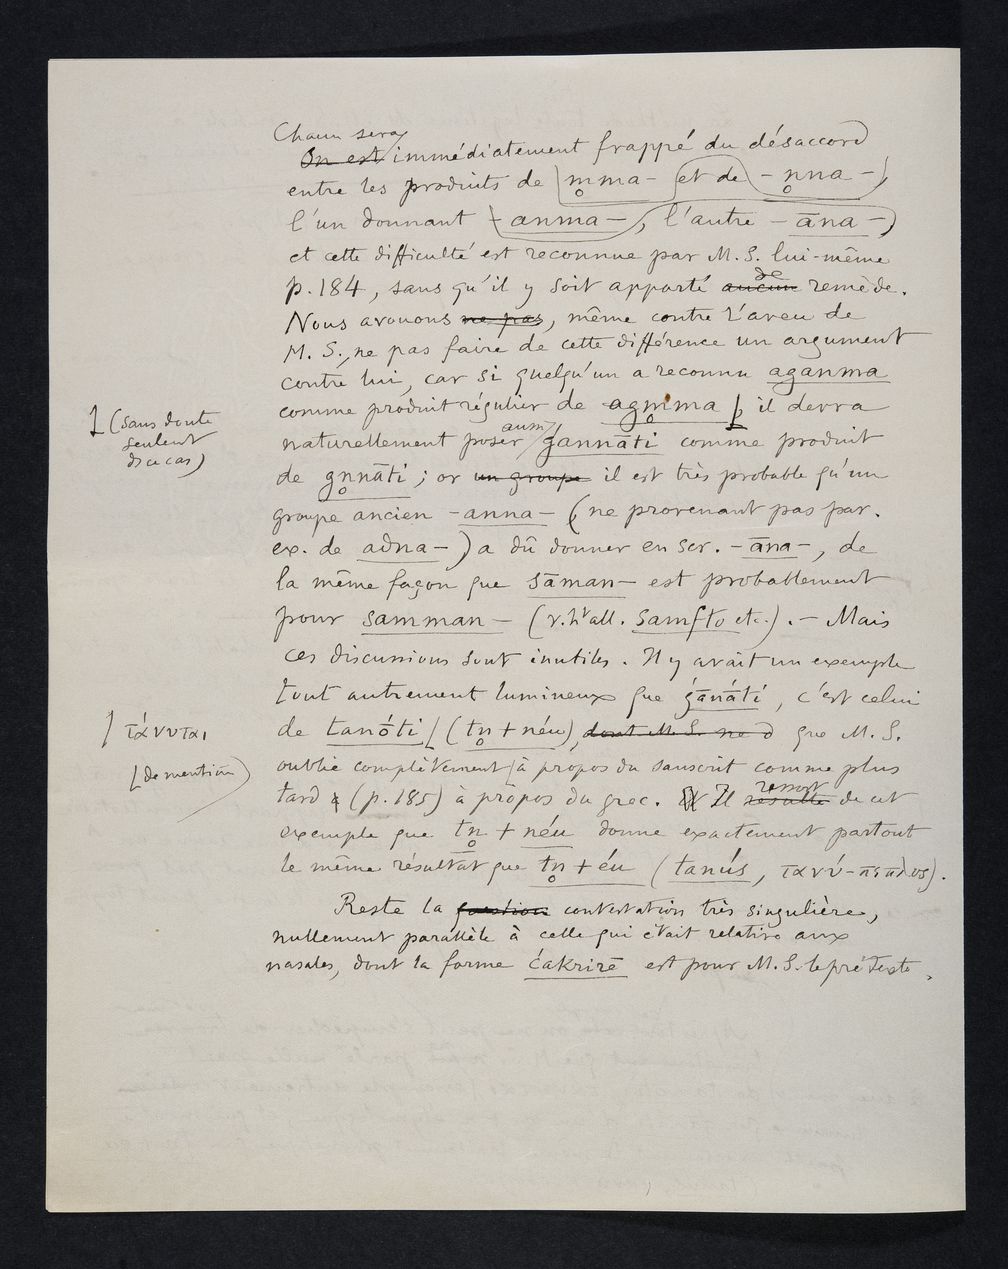 Chacun sera
On est immédiatement frappé du désaccord
entre les produits de m̥ma- et de -n̥na-,
l'un donnant -anma-, l'autre -āna-
et cette difficulté est reconnue par M. S. lui-même
p. 184, sans qu'il y soit apporté aucun de remède.
Nous avouons ne pas, même contre l'aveu de
M. S., ne pas faire de cette différence un argument
contre lui, car si quelqu'un a reconnu aganma
comme produit régulier de agm̥ma, il devra
⁅(sans doute
seulement
dice cas)
naturellement poser aussi ǵannāti comme produit
de gn̥nāti ; or un groupe il est très probable qu'un
groupe ancien -anna- (ne provenant pas par.
ex. de adna-) a dû donner en scr. -āna-, de
la même façon que sāman- est probablement
pour samman- (v. ht all. samfto etc.). – Mais
ces discussions sont inutiles. Il y avait un exemple
tout autrement lumineux que ǵānāti, c'est celui
| τάνυται
de tanōti [(tn̥ + néu), dont M. S. ne d que M. S.
[de mention)
oublie complètement à propos du sanscrit comme plus
tard (p. 185) à propos du grec. Il résulte ressort de cet
exemple que tn̥ + néu donne exactement partout
le même résultat que tn̥ + éu (tanús, τανύ-πεπλος).
Reste la question contestation très singulière,
nullement parallèle à celle qui était relative aux
nasales, dont la forme ćakrirē est pour M. S. le prétexte,